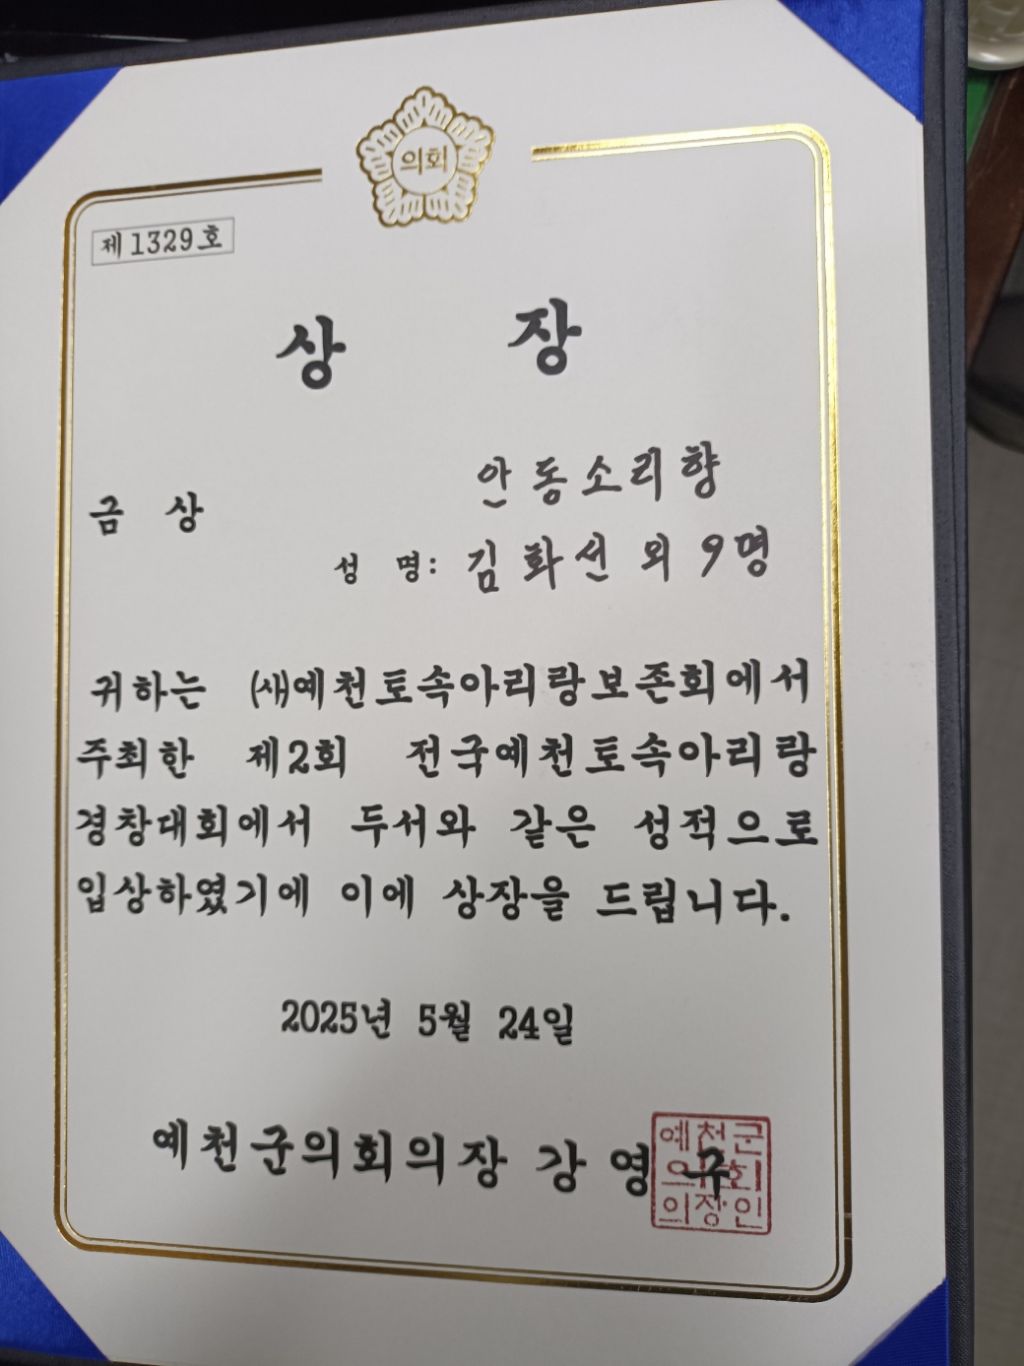 의회
제1329호
상 장
안동소리향
금 상
성 명: 김화선 외 9명
귀하는 (사)예천토속아리랑보존회에서
주최한 제2회 전국예천토속아리랑
경창대회에서 두서와 같은 성적으로
입상하였기에 이에 상장을 드립니다.
2025년 5월 24일
예천군의회의장 강영구
예천군
의회
의장인